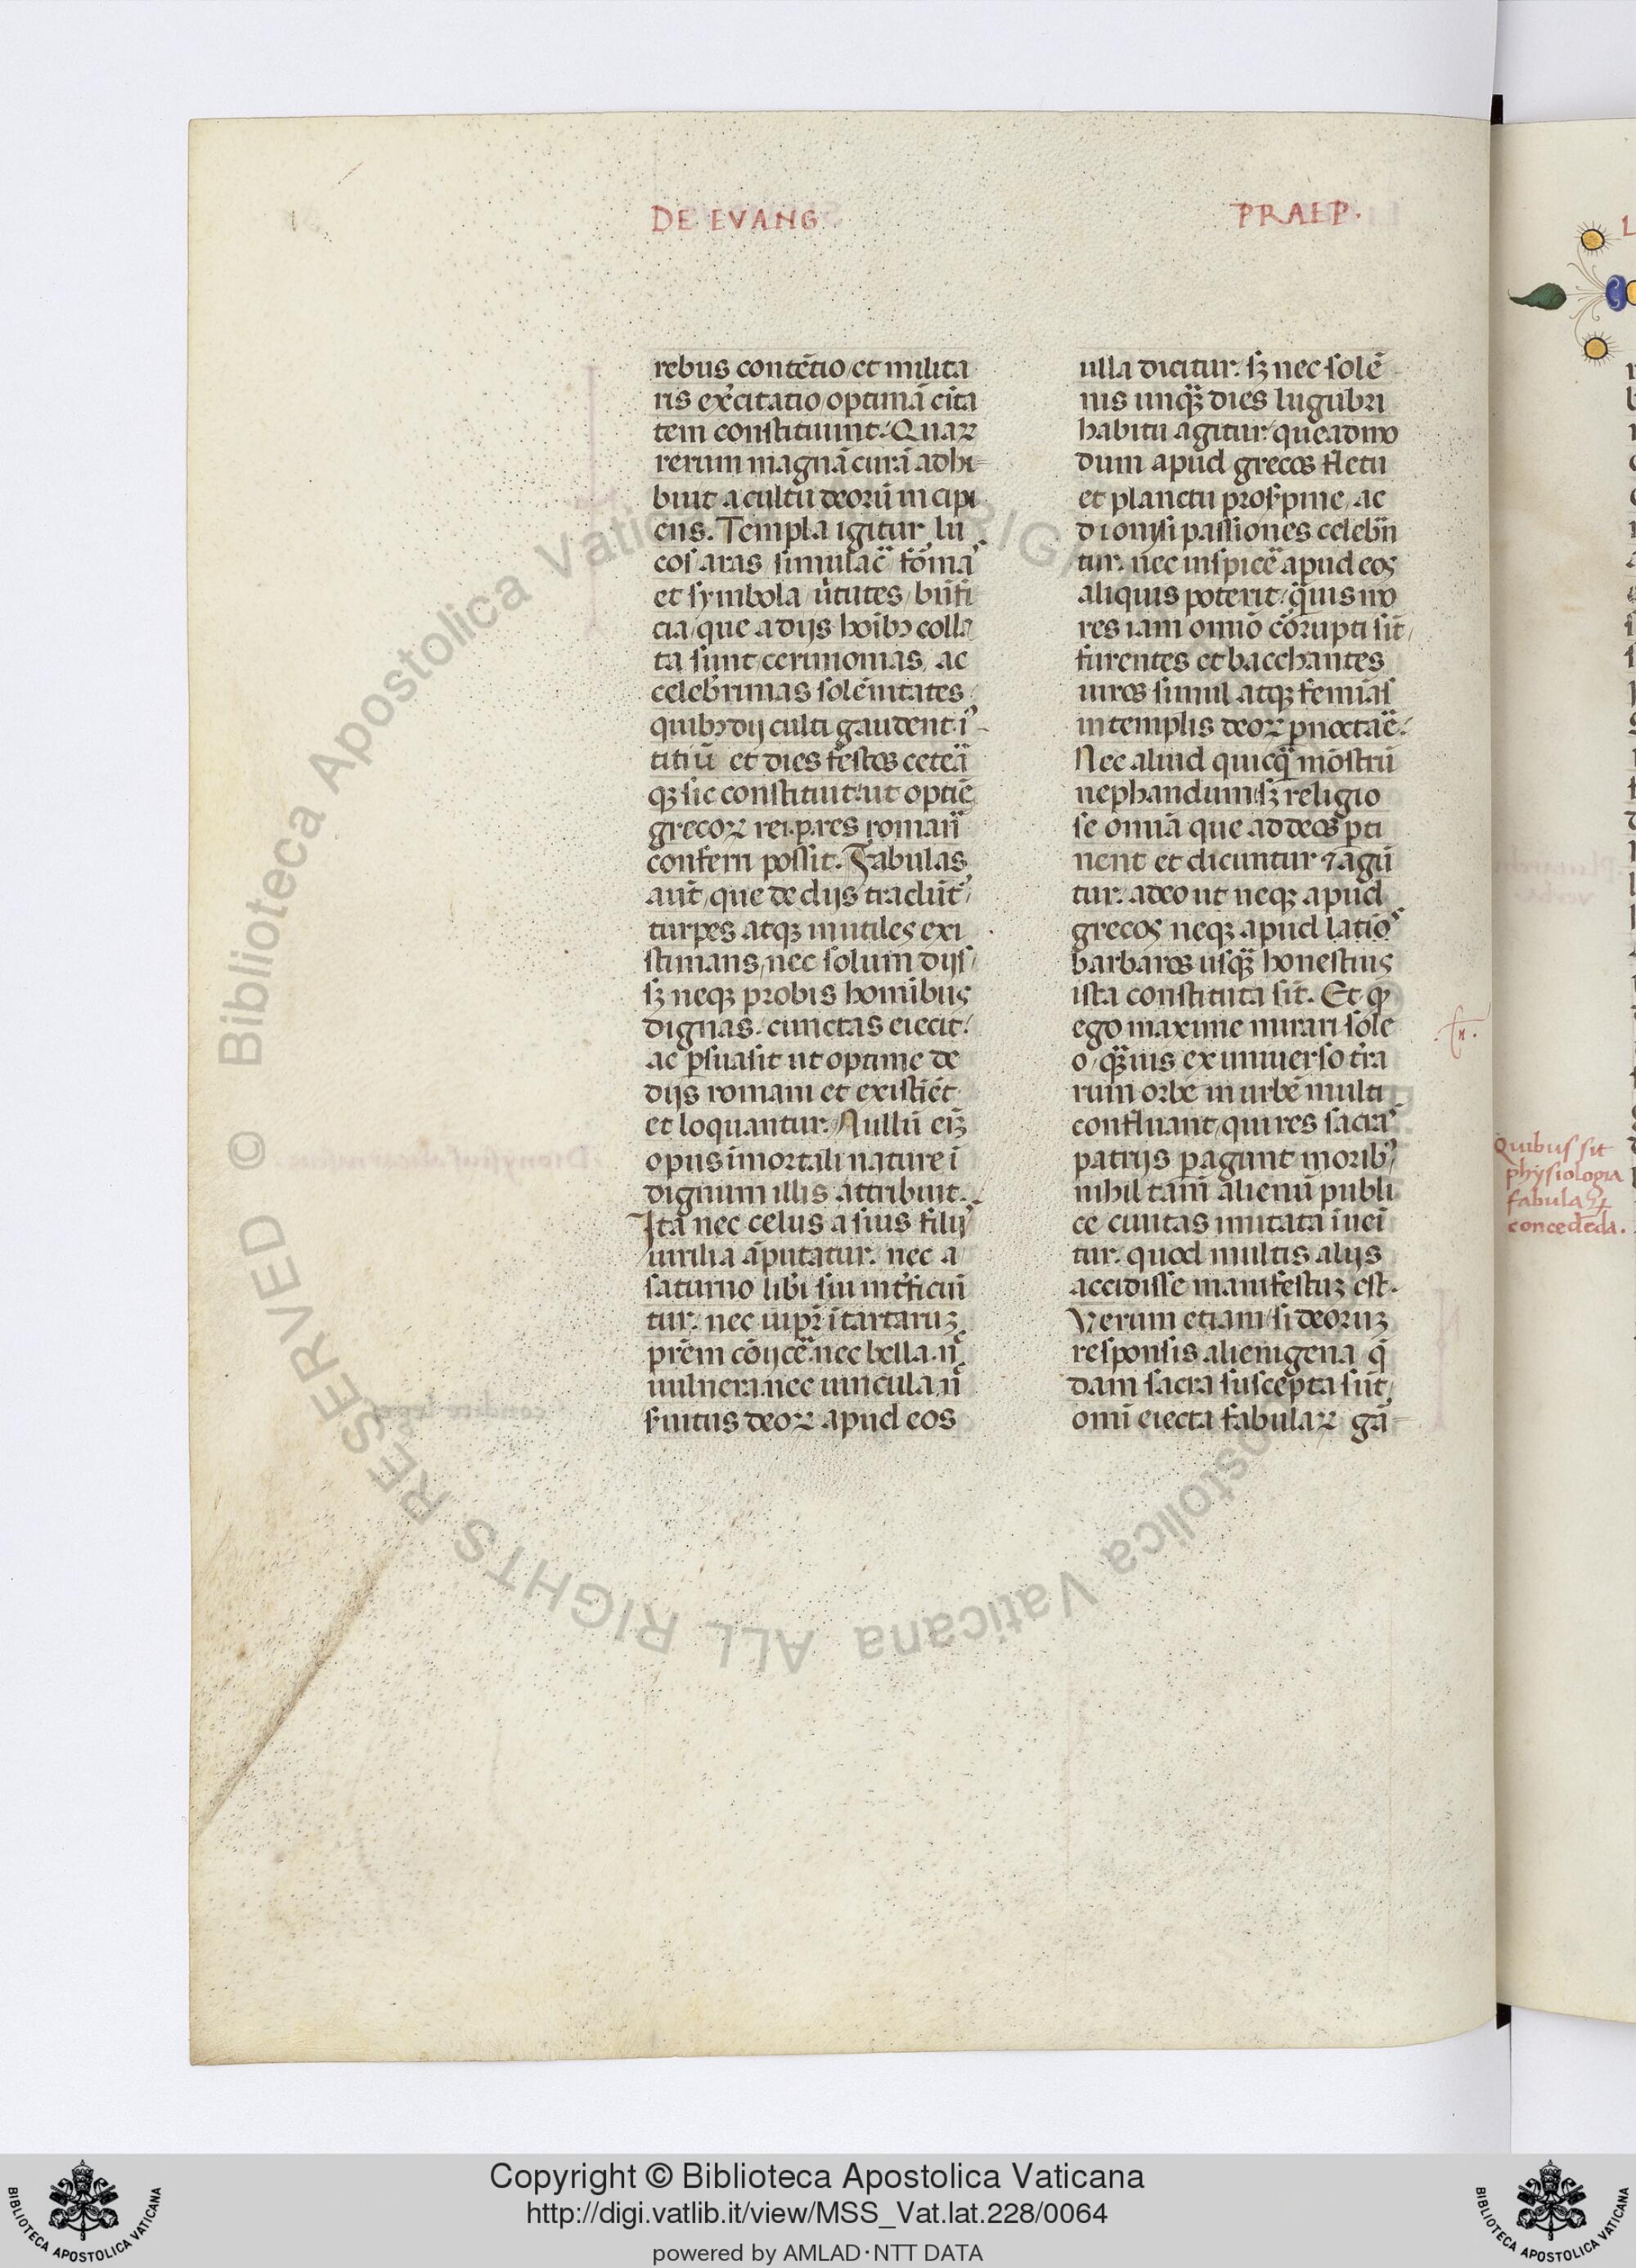 DE EVANG
PRAEP.
rebus contētio/et milita
ris exercitatio/optimā cīta
tem constituunt. Quaꝝ
rerum magnā curā adhi-
buit a cultu deorū incipi
ens. Templa igitur lu
cos aras simulac̄ fōmā
et symbola
cia/que a dijs hoībꝫ colla
ta sunt/cerimonias, ac
celebrimas solēnitates
quibꝫ dij culti gaudent
et dies festos ceteā
qꝫ sic constituit/ut
grecoꝝ rei.p.res romaīī
conferri possit. Fabulas
aūt/que de dijs tradūt
turpes atqꝫ inutiles exi
stimans/nec solum dijs/
sꝫ neqꝫ probis hominibus
dignas. cunctas eiecit.
ac ꝑsuasit ut optime de
dijs romani et existiēt
et loquantur. Nullū eīꝫ
opus īmortali nature ī
dignum illis attribuit.
Ita nec celus a suis filijs
uirilia āputatur. nec a
saturno libi sui
tur. nec ītartaruꝫ
prēm cōijcē. nec bella. n̄
uulnera. nec uincula. n̄
ſuitus deoꝝ apud eos
ulla dicitur. sꝫ nec solē
nis unqꝫ dies lugubri
habitu agitur/queadmo
dum apud grecos fletu
et planctu proſꝑine/ac
dionysi passiones celebrn̄
tur. nec inspicē apud eos
aliquis poterit/quis mo
res iam omnō cōrupti sīt/
furentes et bacchantes
uiros simul atqꝫ femīas
in templis deoꝝ ꝑnoctāē.
Nec aliud quicqꝫ mōstrū
nephandum/sꝫ religio
se omīa que ad deos ꝑti
nent et dicuntur ⁊ agū
tur. adeo ut neqꝫ apud
grecos neqꝫ apud latio
barbaros usqꝫ honestius
ista constituta sīt. Et ꝙ
ego maxime mirari sole
o/ ex uniuerso t̄ra
rum orbe in urbē multi
confluant/qui res sacras
patrijs ꝑagunt moribꝫ/
nihil tam̄ alienū publi
ce ciuitas imitata īuēi
tur. quod multis alijs
accidisse manifestuꝫ est.
Verum etiam/si deoruꝫ
responsis alienigena q̄
dam sacra suscepta sūt/
omī eiecta fabulaꝝ gā-
Quibus sit
physiologia
fabulaꝝ
concedēda.
© Biblioteca Apostolica Vaticana ALL RIGHTS RESERVED
BIBLIOTECA APOSTOLICA VATICANA
Copyright © Biblioteca Apostolica Vaticana
http://digi.vatlib.it/view/MSS_Vat.lat.228/0064
powered by AMLAD·NTT DATA
BIBLIOTECA APOSTOLICA VATICANA